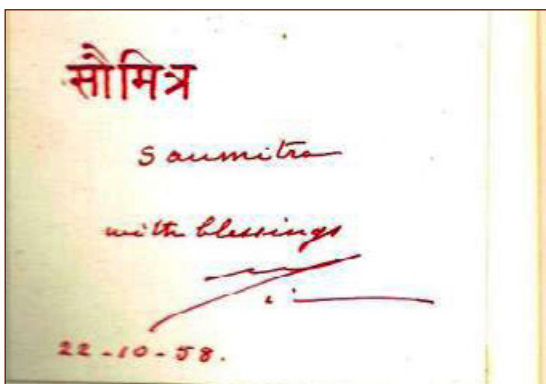 सौमित्र
Saumitra
with blessings
22-10-58.